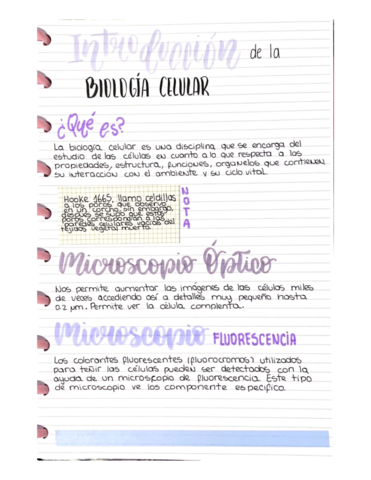 Introducción de la
BIOLOGÍA CELULAR
¿Qué es?
La biología celular es una disciplina que se encarga del
estudio de las células en cuanto a lo que respecta a las
propiedades, estructura, funciones, orgánelos que contienen
su interacción con el ambiente y su ciclo vital.
Hooke 1665, llamo celdillas
a los poros que observo
en un corcho, sin embargo,
después se supo que estos
poros correspondían a las
paredes celulares vacías del
tejidos vegetal muerta.
NOTA
Microscopio Óptico
Nos permite aumentar las imágenes de las células miles
de veces accediendo así a detalles muy pequeño hasta
0.2 µm. Permite ver la célula completa.
Microscopio FLUORESCENCIA
Los colorantes fluorescentes (fluorocromos) utilizados
para teñir las células pueden ser detectados con la
ayuda de un microscopio de fluorescencia. Este tipo
de microscopio ve los componente especifico.